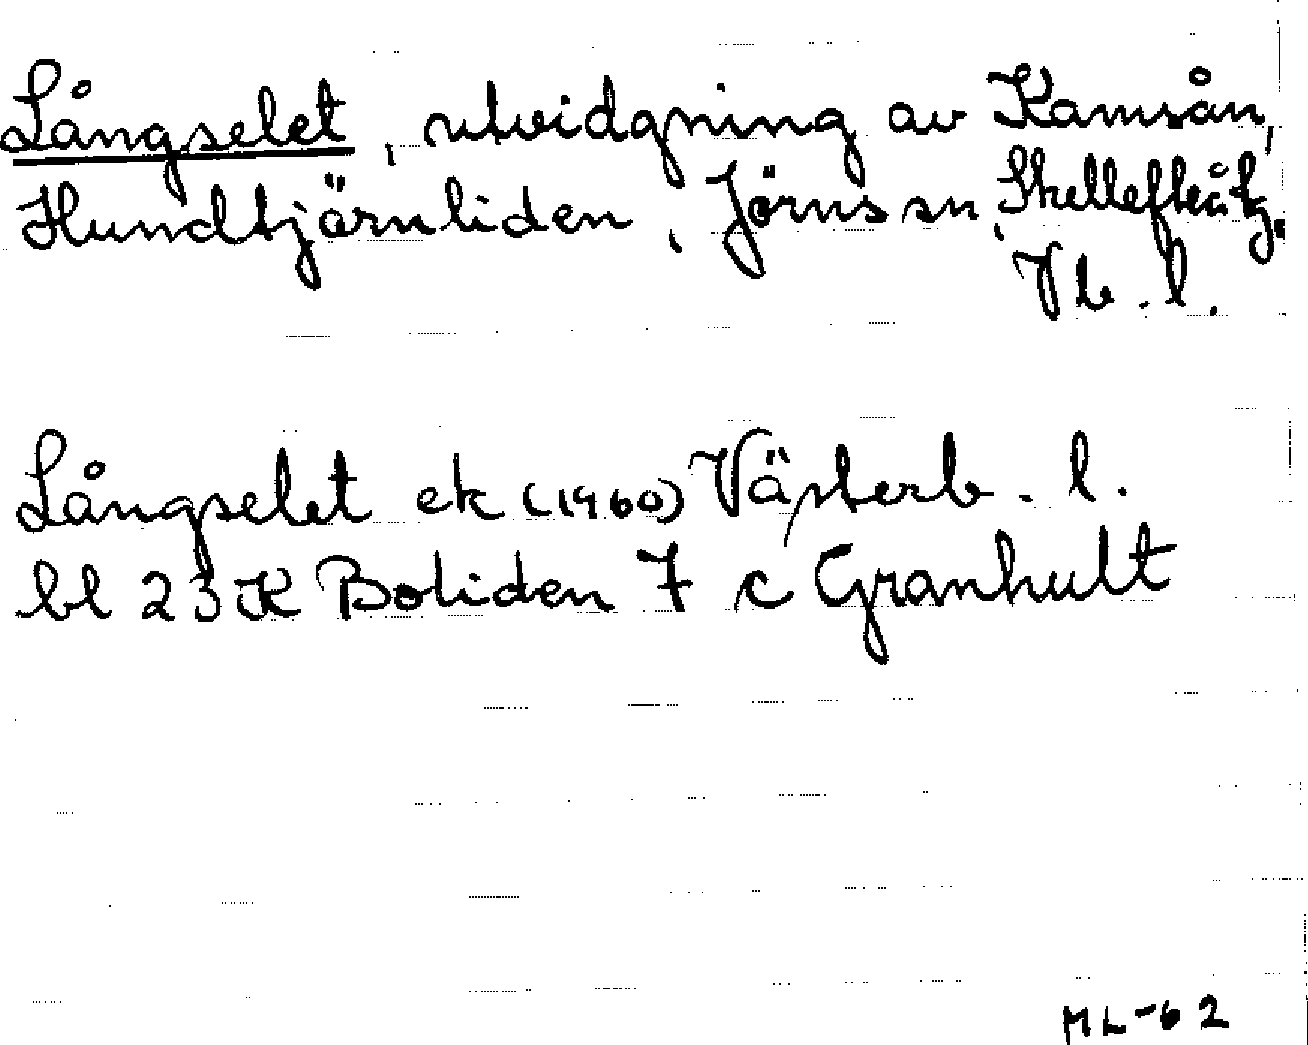 Långselet, utvidgning av Kamsån,
Hundtjärnliden, Jörns sn, Skellefteå tg.
Vb. l.
Långselet ek (1960) Västerb. l.
bl 23 K Boliden 7 c Granhult
ML-62